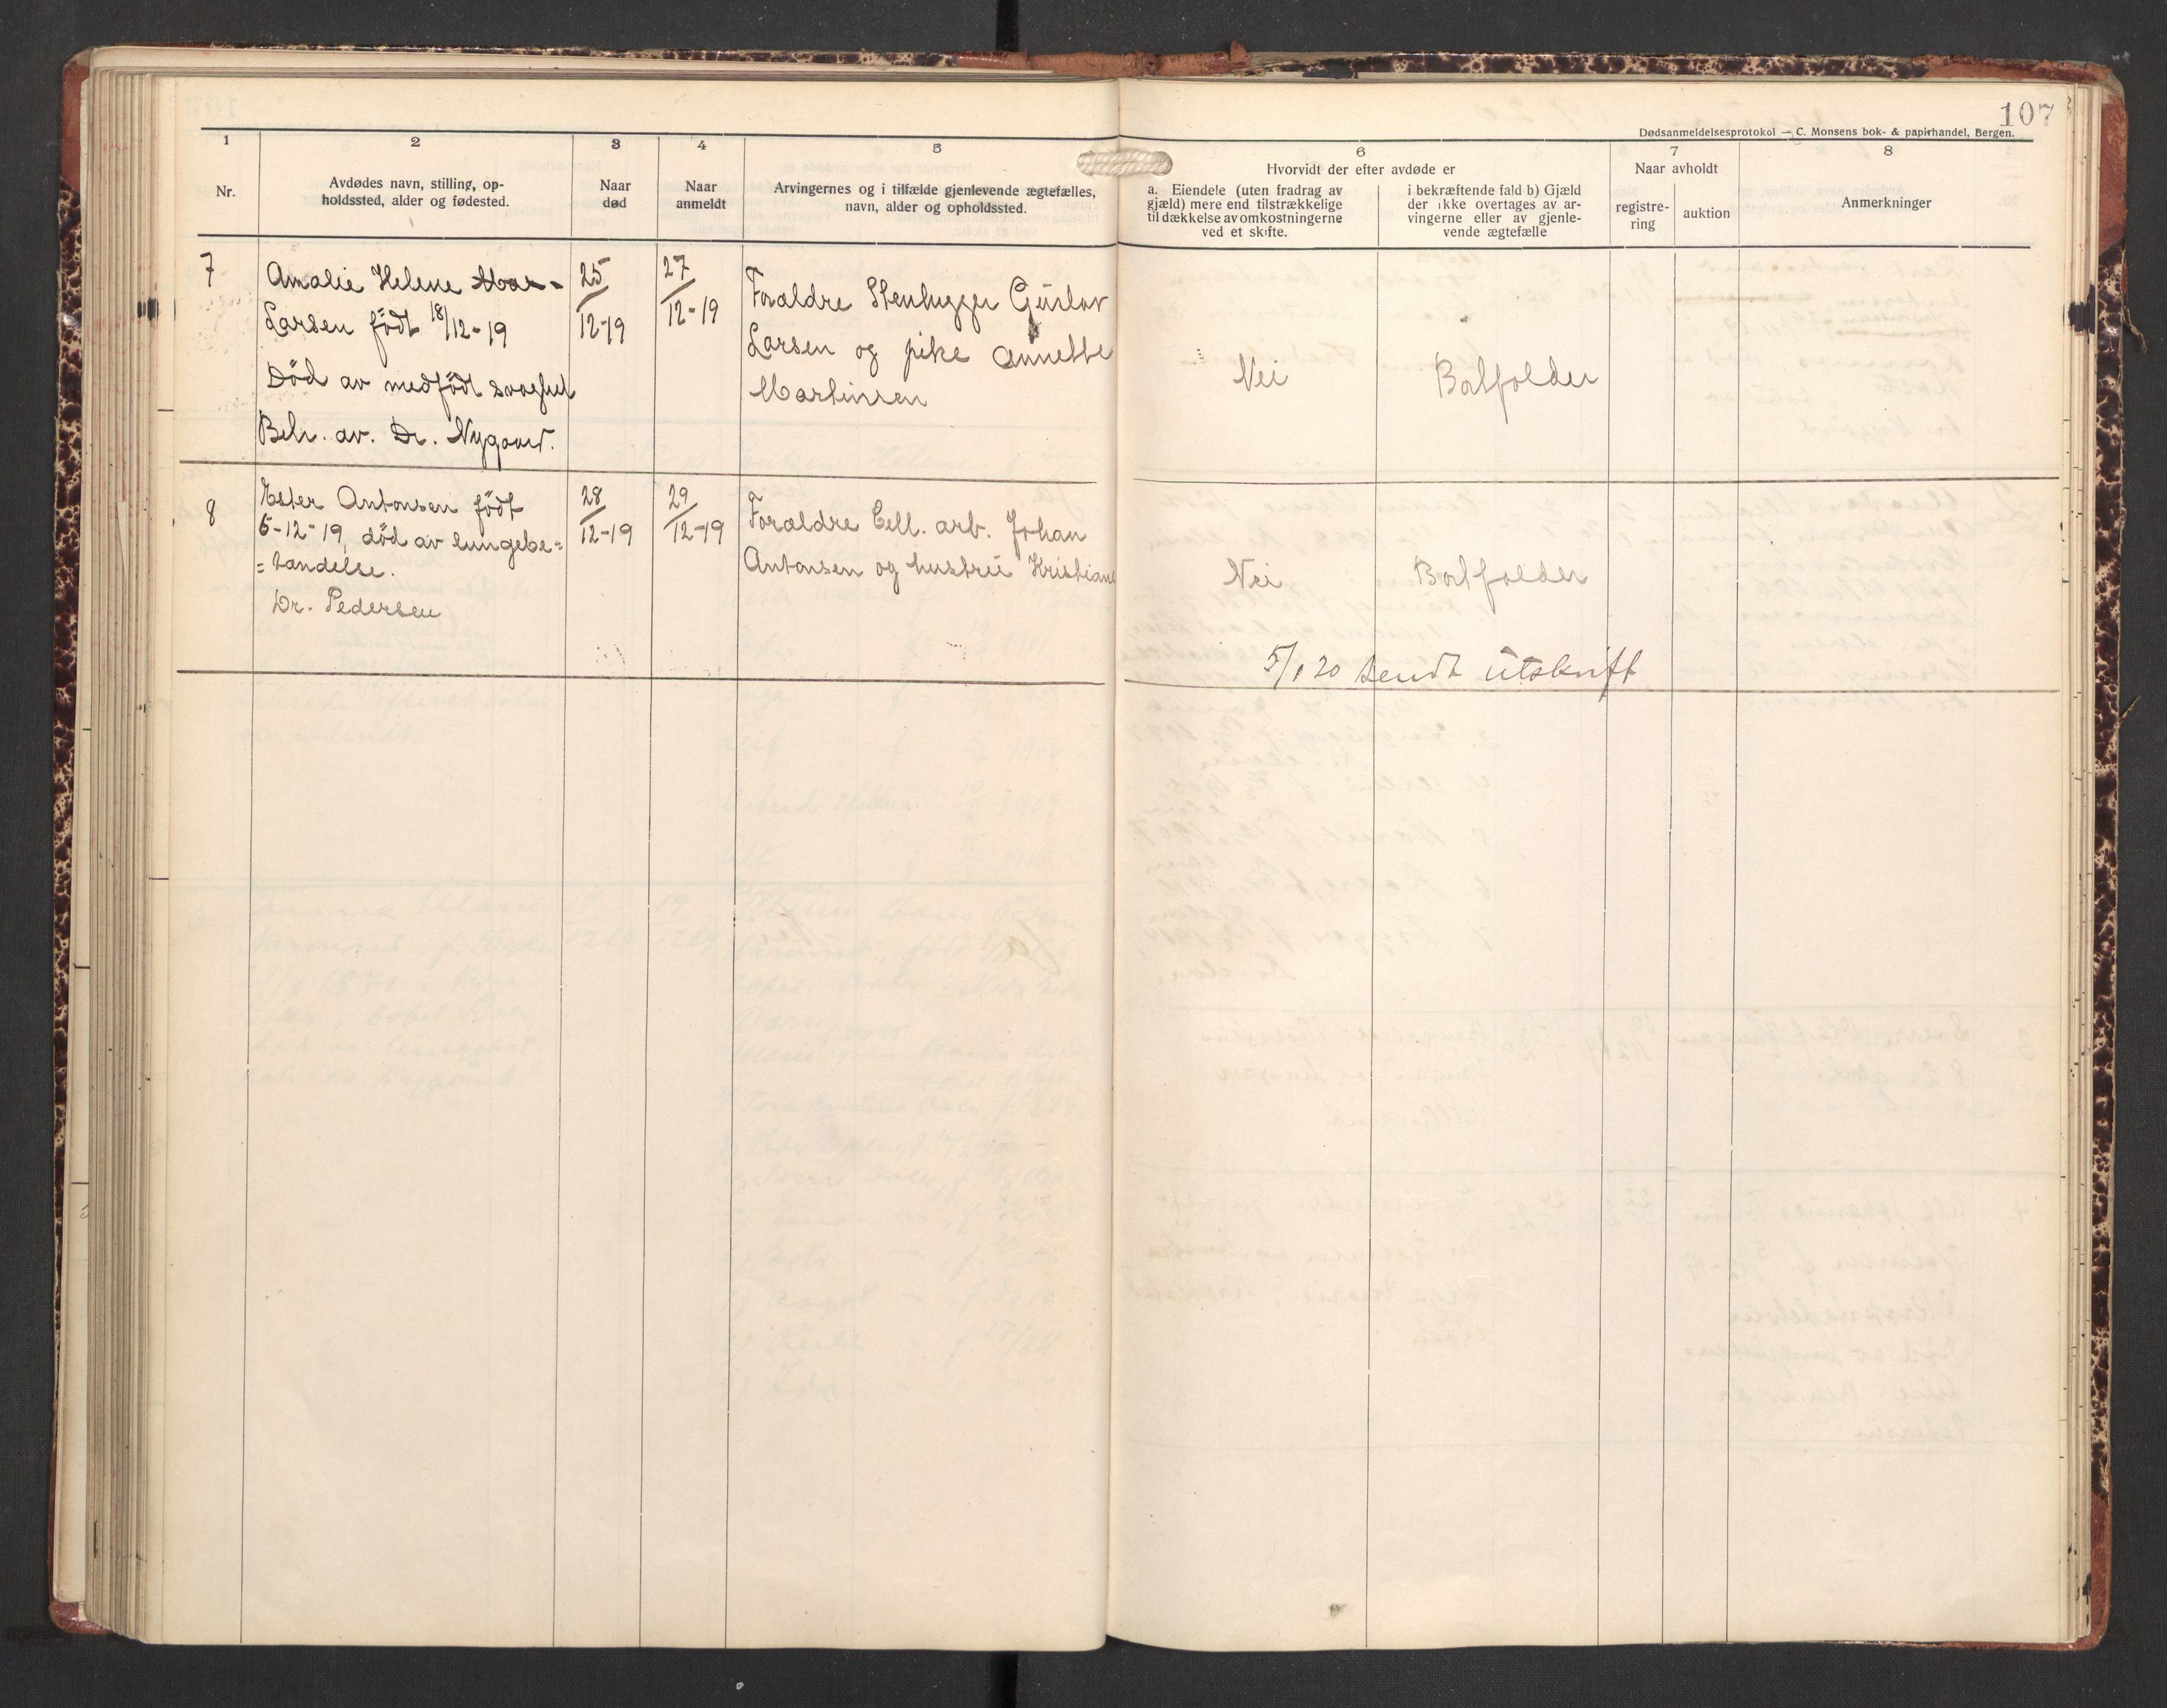 107
Dødsanmeldelsesprotokol — C. Monsens bok- & papirhandel, Bergen.
1 2 3 4 5 6 7 8
Nr.
Avdødes navn, stilling, op-
holdssted, alder og fødested.
Naar
død
Naar
anmeldt
Arvingernes og i tilfælde gjenlevende ægtefælles,
navn, alder og opholdssted.
Hvorvidt der efter avdøde er
a. Eiendele (uten fradrag av
gjæld) mere end tilstrækkelige
til dækkelse av omkostningerne
ved et skifte.
i bekræftende fald b) Gjæld
der ikke overtages av ar-
vingerne eller av gjenle-
vende ægtefælle
Naar avholdt
registre-
ring
auktion
Anmerkninger
7
Amalie Helene Mar-
Larsen födt 18/12-19
Död av medfödt svaghet
Beh. av. Dr. Nygaard.
25/12-19
27/12-19
Foraldre Stenhugger Gustav
Larsen og pike Annette
Martinsen
Nei
Bortfalder
8
Ester Antonsen födt
6-12-19, död av lungebe=
=tandelse.
Dr. Pedersen
28/12-19
29/12-19
Foraldre Cell. arb. Johan
Antonsen og hustru Kristiane
Nei
Bortfalder
5/1 20 sendt utskrift